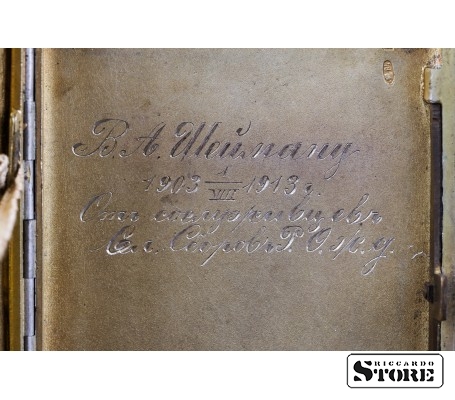 В. А. Шейману
1903 1/VIII 1913 г.
Отъ сослуживцевъ
Сл. Сборовъ Р. О. ж. д.
RICCARDO
STORE